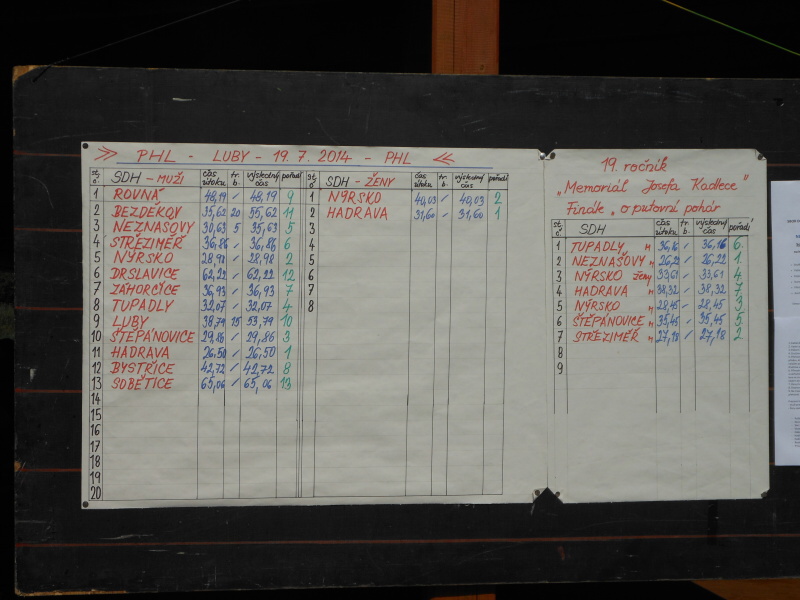 PHL - LUBY - 19.7.2014 - PHL
st. č. SDH - MUŽI čas útoku tr. b. výsledný čas pořadí
1 ROVNÁ 48,19 / 48,19 9
2 BEZDĚKOV 35,62 20 55,62 11
3 NEZNAŠOVY 30,63 5 35,63 5
4 STŘEZIMĚŘ 36,86 / 36,86 6
5 NÝRSKO 28,98 / 28,98 2
6 DRSLAVICE 62,22 / 62,22 12
7 ZÁHORČICE 36,93 / 36,93 7
8 TUPADLY 32,07 / 32,07 4
9 LUBY 38,79 15 53,79 10
10 ŠTĚPÁNOVICE 29,86 / 29,86 3
11 HADRAVA 26,50 / 26,50 1
12 BYSTŘICE 42,72 / 42,72 8
13 SOBĚTICE 65,06 / 65,06 13
14
15
16
17
18
19
20
st. č. SDH - ŽENY čas útoku tr. b. výsledný čas pořadí
1 NÝRSKO 40,03 / 40,03 2
2 HADRAVA 31,60 / 31,60 1
3
4
5
6
7
8
19. ročník
„Memoriál Josefa Kadlece"
Finále „o putovní pohár
st. č. SDH čas útoku tr. b. výsledný čas pořadí
1 TUPADLY " 36,16 / 36,16 6.
2 NEZNAŠOVY " 26,22 / 26,22 1.
3 NÝRSKO ženy 33,61 / 33,61 4.
4 HADRAVA " 38,32 / 38,32 7.
5 NÝRSKO " 28,45 / 28,45 3.
6 ŠTĚPÁNOVICE " 35,45 / 35,45 5.
7 STŘEZIMĚŘ " 27,18 / 27,18 2.
8
9